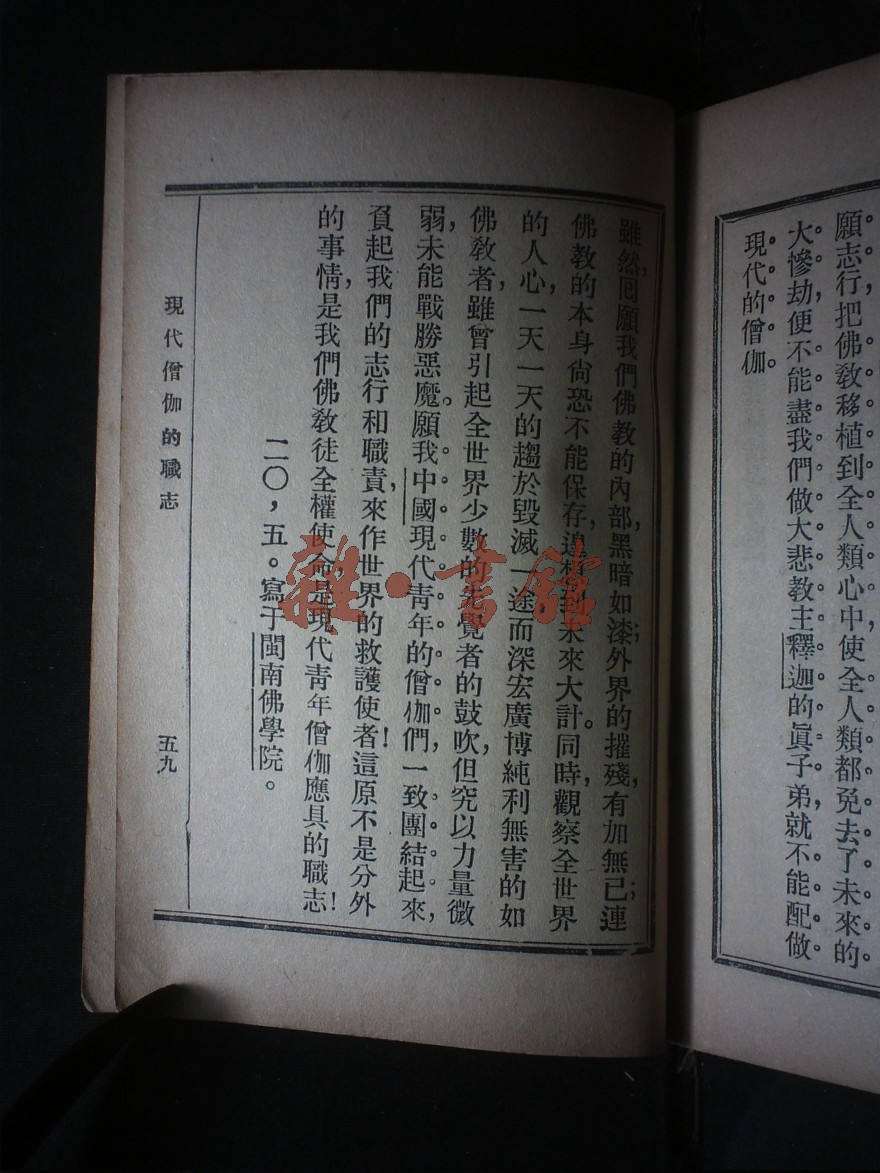 願志行,把佛教移植到全人類心中使全人類都免去了未來的
大慘劫,便不能盡我們做大悲教主釋迦的眞子弟,就不能配做
現代的僧伽。
雖然,囘願我們佛教的內部,黑暗如漆;外界的摧殘,有加無已;連
佛教的本身尙恐不能保存,遑想到未來大計。同時,觀察全世界
的人心,一天一天的趨於毀滅一途,而深宏廣博純利無害的如
佛教者,雖曾引起全世界少數的先覺者的鼓吹,但究以力量微
弱,未能戰勝惡魔。願我中國現代靑年的僧伽們,一致團結起來,
負起我們的志行和職責,來作世界的救護使者!這原不是分外
的事情,是我們佛教徒全權使命,是現代靑年僧伽應具的職志!
二〇,五。寫于閩南佛學院。
現代僧伽的職志
五九
雜·書館